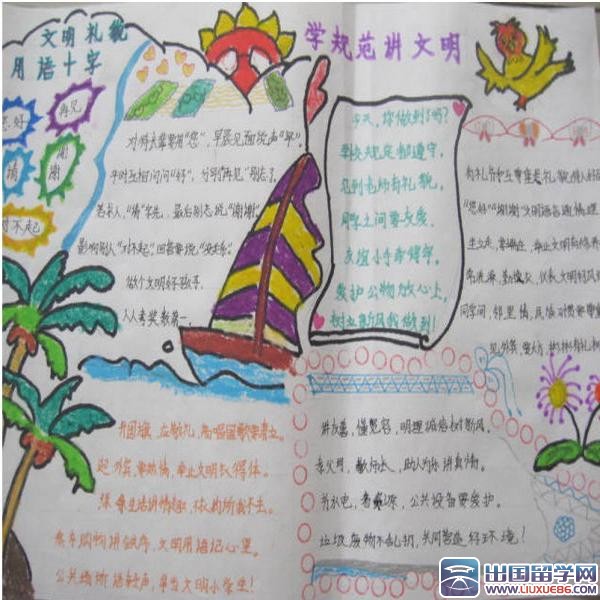 文明礼貌
用语十字
您好
再见
请
谢谢
对不起
学规范讲文明
对师长要用"您",早晨见面说声"早"。
平时互相问问"好",分别"再见"别忘了。
若求人,"请"字先,最后别忘说"谢谢"。
影响别人"对不起",回答要说"没关系"。
做个文明好孩子,
人人夸奖数第一。
今天,你做到了吗?
学校规定都遵守,
见到老师有礼貌。
同学之间要友爱,
友谊小手牵得牢。
爱护公物放心上,
树立新风我做到!
升国旗,应敬礼,高唱国歌要肃立。
迎外宾,要热情,举止文明
乘车购物讲秩序,文明用语记心里。
公共场所语轻声,争当文明小学生!
讲友善,懂宽容,明理诚信树新风。
孝父母,敬师长,助人为乐讲真情。
节水电,看资源,公共设备要爱护。
垃圾废物不乱扔,共同营造好环境!
出国留学网
WWW.LIUXUE86.COM